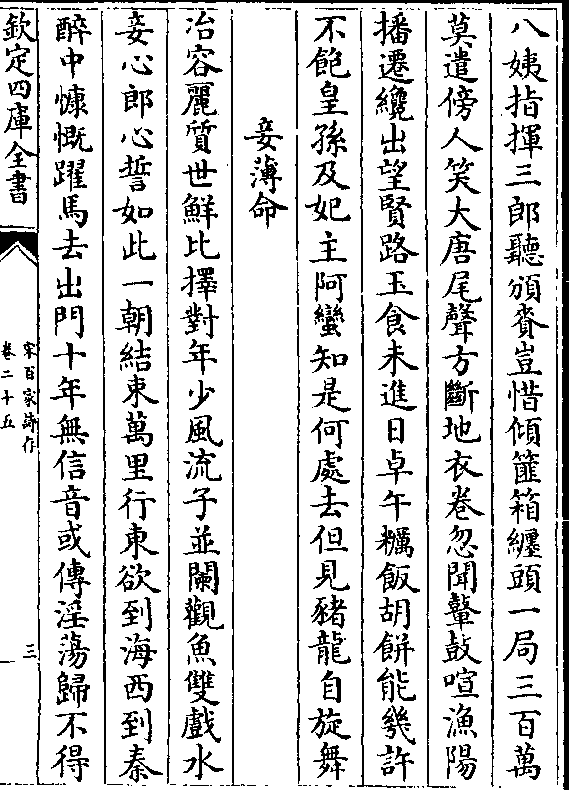 八姨指揮三郎聽頒賚豈惜傾篚箱纏頭一局三百萬
莫遣傍人笑大唐尾聲方斷地衣卷忽聞鼙鼓喧漁陽
播遷纔出望賢路玉食未進日卓午糲飯胡餅能幾許
不飽皇孫及妃主阿蠻知是何處去但見豬龍自旋舞
妾薄命
冶容麗質世鮮比擇對年少風流子並闌觀魚雙戲水
妾心郎心誓如此一朝結束萬里行東欲到海西到秦
醉中慷慨躍馬去出門十年無信音或傳淫蕩歸不得
欽定四庫全書
宋百家詩存
卷二十五
三